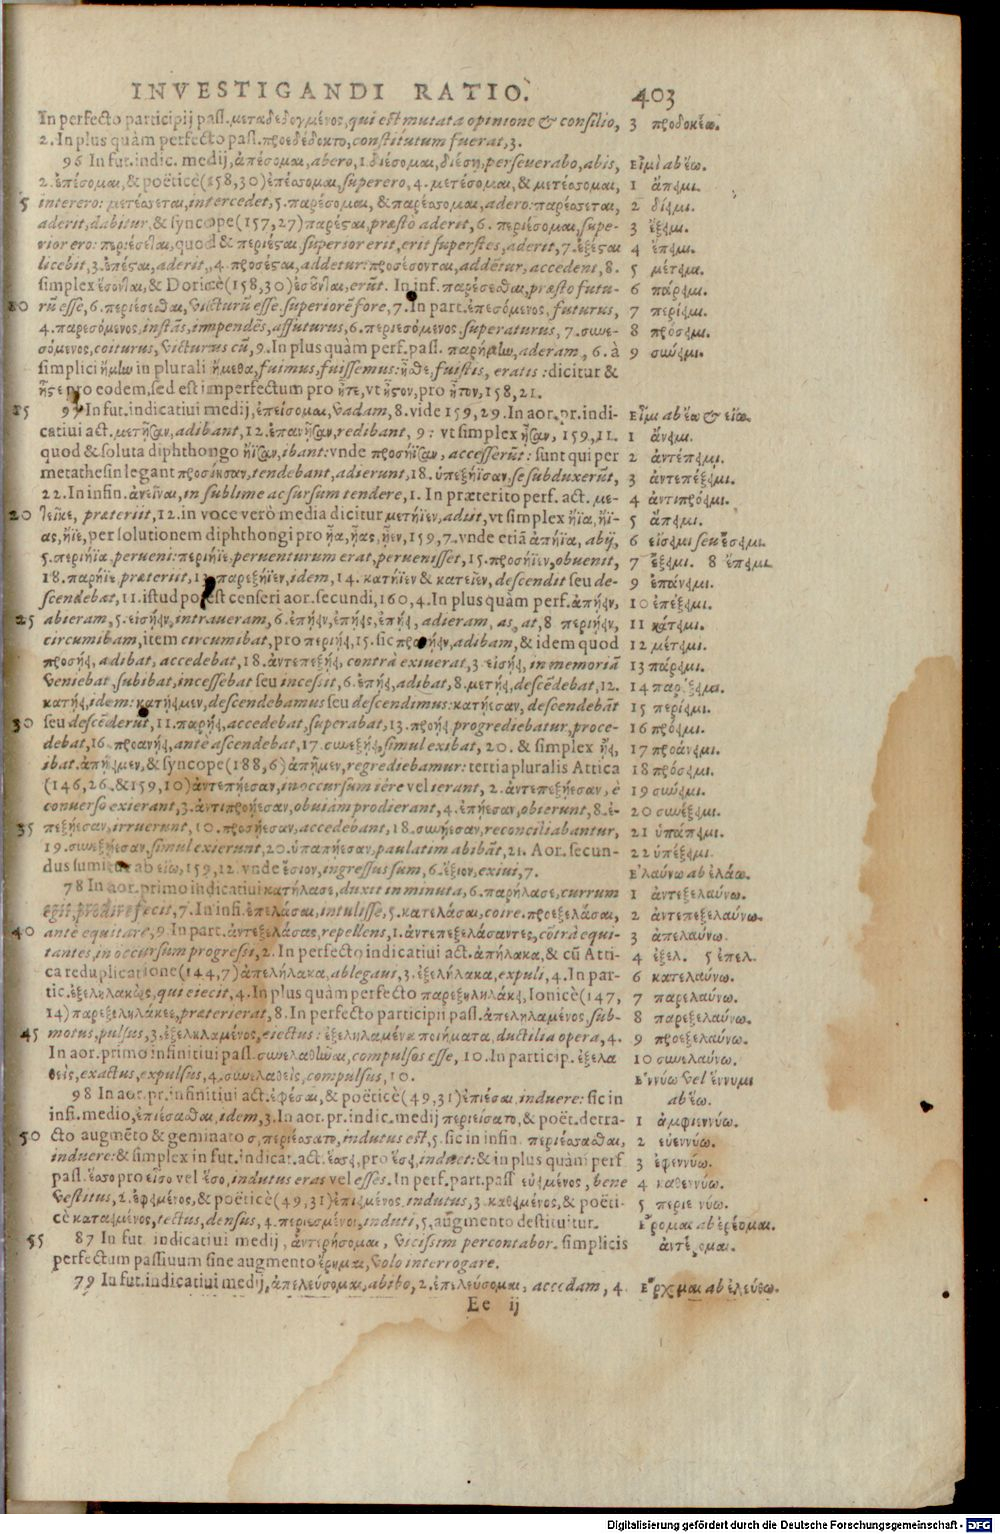 INVESTIGANDI RATIO. 403
In perfecto participij pass. μεταδεδογμένος, qui est mutata opinione & consilio, 3 προδοκέω.
2. In plus quàm perfecto pass. προεδέδοκτο, constitutum fuerat, 3.
96 In fut. indic. medij, ἀπέσομαι, abero, 1. διέσομαι, διέση, perseverabo, abis, Εἰμὶ ab ἕω.
2. ἐπέσομαι, & poëticè (158, 30) ἐπέσσομαι, superero, 4. μετέσομαι, & μετέσσομαι, 1 ἄπειμι.
5 interero: μετέσσεται, intercedet, 5. παρέσομαι, & παρέσσομαι, adero: παρέσσεται, 2 δίειμι.
aderit, dabitur, & syncope (157, 27) παρέσται, præstò aderit, 6. περιέσομαι, supe- 3 ἔξειμι.
rior ero: περιέσεται, quod & περιέσται, superior erit, erit superstes, aderit, 7. ἐξέσται 4 ἔπειμι.
licebit, 3. ἐπέσται, aderit, 4. προσέσται, addetur: προσέσονται, addētur, accedent, 8. 5 μέτειμι.
simplex ἔσονται, & Doricè (158, 30) ἐσοῦνται, erūt. In inf. παρέσεσθαι, præsto futu- 6 πάρειμι.
10 rū esse, 6. περιέσεσθαι, victurū esse, superiorē fore, 7. In part. ἐπεσόμενος, futurus, 7 περίειμι.
4. παρεσόμενος, instās, impendēs, affuturus, 6. περιεσόμενος superaturus, 7. συνε- 8 πρόσειμι.
σόμενος, coiturus, victurus cū, 9. In plus quàm perf. pass. παρήμην, aderam, 6. à 9 σύνειμι.
simplici ἤμην in plurali ἤμεθα, fuimus, fuissemus: ἦσθε, fuistis, eratis: dicitur &
ἦστε pro eodem, sed est imperfectum pro ἦτε, vt ἦστον, pro ἦτον, 158, 21.
15 97 In fut. indicatiui medij, ἐπείσομαι, vadam, 8. vide 159, 29. In aor. pr. indi- Εἶμι ab ἕω & εἴω.
catiui act. μετῆσαν, adibant, 12. ἐπανῆσαν, redibant, 9: vt simplex ἦσαν, 159, 11. 1 ἄνειμι.
quod & soluta diphthongo ἤϊσαν, ibant: vnde προσήϊσαν, accesserūt: sunt qui per 2 ἀντέπειμι.
metathesin legant προσίησαν, tendebant, adierunt, 18. ὑπεξήϊσαν, se subduxerūt, 3 ἀντεπέξειμι.
22. In infin. ἀνεῖναι, in sublime ac sursum tendere, 1. In præterito perf. act. με- 4 ἀντιπρόειμι.
20 τεῖκε, præteriit, 12. in voce verò media dicitur μετήϊεν, adiit, vt simplex ἤϊα, ἤϊ- 5 ἄπειμι.
ας, ἤϊε, per solutionem diphthongi pro ἦα, ἦας, ἦεν, 159, 7. vnde etiā ἀπήϊα, abij, 6 εἴσειμι seu ἔσειμι.
5. περιήϊα, perueni: περιήϊε, peruenturum erat, peruenisset, 15. προσήϊεν, obuenit, 7 ἔξειμι. 8 ἔπειμι.
18. παρήϊε præteriit, 13 παρεξήϊεν, idem, 14. κατήϊεν & κατεῖεν, descendit seu de- 9 ἐπάνειμι.
scendebat, 11. istud potest censeri aor. secundi, 160, 4. In plus quàm perf. ἀπήειν, 10 ἐπέξειμι.
25 abieram, 5. εἰσήειν, intraueram, 6. ἐπήειν, ἐπήεις, ἐπήει, adieram, as, at, 8 περιήειν, 11 κάτειμι.
circumibam, item circumibat, pro περιήει, 15. sic προσήειν, adibam, & idem quod 12 μέτειμι.
προσήει, adibat, accedebat, 18. ἀντεπεξήει, contrà exiuerat, 3. εἰσήει, in memoriā 13 πάρειμι.
veniebat, subibat, incessebat seu incessit, 6. ἐπήει, adibat, 8. μετήει, descēdebat, 12. 14 παρέξειμι.
κατήει, idem: κατήειμεν, descendebamus seu descendimus: κατήεσαν, descendebāt 15 περίειμι.
30 seu descēderūt, 11. παρήει, accedebat, superabat, 13. προήει progrediebatur, proce- 16 πρόειμι.
debat, 16. προανήει, antè ascendebat, 17. συνεξήει, simul exibat, 20. & simplex ἤει, 17 προάνειμι.
ibat. ἀπήειμεν, & syncope (188, 6) ἀπῆμεν, regrediebamur: tertia pluralis Attica 18 πρόσειμι.
(146, 26. & 159, 10) ἀντεπήεσαν, in occursum iēre vel ierant, 2. ἀντεπεξήεσαν, è 19 σύνειμι.
conuerso exierant, 3. ἀντιπροήεσαν, obuiàm prodierant, 4. ἐπήεσαν, obierunt, 8. ἐ- 20 συνέξειμι.
35 πεξήεσαν, irruerunt, 10. προσήεσαν, accedebant, 18. συνήεσαν, reconciliabantur, 21 ὑπάπειμι.
19. συνεξήεσαν, simul exierunt, 20. ὑπαπήεσαν, paulatim abibāt, 21. Aor. secun- 22 ὑπέξειμι.
dus sumitur ab εἴω, 159, 12. vnde ἔσιον, ingressus sum, 6. ἔξιον, exiui, 7. Ἐλαύνω ab ἐλάω.
78 In aor. primo indicatiui κατήλασε, duxit in minuta, 6. παρήλασε, currum 1 ἀντεξελαύνω.
egit, prodire fecit, 7. In infi. ἐπελάσαι, intulisse, 5. κατελάσαι, coire. προεξελάσαι, 2 ἀντεπεξελαύνω.
40 antè equitare, 9. In part. ἀντεξελάσας, repellens, 1. ἀντεπεξελάσαντες, cōtrà equi- 3 ἀπελαύνω.
tantes, in occursum progressi, 2. In perfecto indicatiui act. ἀπήλακα, & cū Atti- 4 ἐξελ. 5 ἐπελ.
ca reduplicatione (144, 7) ἀπελήλακα, ablegaui, 3. ἐξελήλακα, expuli, 4. In par- 6 κατελαύνω.
tic. ἐξεληλακὼς, qui eiecit, 4. In plus quàm perfecto παρεξηληλάκει, Ionicè (147, 7 παρελαύνω.
14) παρεξεληλάκεε, præterierat, 8. In perfecto participii pass. ἀπεληλαμένος, sub- 8 παρεξελαύνω.
45 motus, pulsus, 3. ἐξεληλαμένος, eiectus: ἐξεληλαμένα ποιήματα, ductilia opera, 4. 9 προεξελαύνω.
In aor. primo infinitiui pass. συνελαθῆναι, compulsos esse, 10. In particip. ἐξελα 10 συνελαύνω.
θεὶς, exactus, expulsus, 4. συνελαθεὶς, compulsus, 10. Ἑννύω vel ἕννυμι
98 In aor. pr. infinitiui act. ἐφέσαι, & poëticè (49, 31) ἐπιέσαι, induere: sic in ab ἕω.
infi. medio, ἐπιέσασθαι, idem, 3. In aor. pr. indic. medij περιείσατο, & poët. detra- 1 ἀμφιεννύω.
50 cto augmēto & geminato σ, περιέσσατο, indutus est, 5. sic in infin. περιέσασθαι, 2 εὐεννύω.
induere: & simplex in fut. indicat. act. ἕσσει, pro ἕσει, induet: & in plus quàm perf 3 ἐφεννύω.
pass. ἕσσο pro εἷσο vel ἕσο, indutus eras vel esses. In perf. part. pass εὐειμένος, bene 4 καθεννύω.
vestitus, 2. ἐφειμένος, & poëticè (49, 31) ἐπιειμένος indutus, 3 καθειμένος, & poëti- 5 περιεννύω.
cè καταειμένος, tectus, densus, 4. περιεσμένοι, induti, 5, augmento destituitur. Ἔρομαι ab ἐρέομαι.
55 87 In fut. indicatiui medij, ἀντερήσομαι, vicissim percontabor. simplicis ἀντέρομαι.
perfectum passiuum sine augmento ἔρημαι, volo interrogare.
79 In fut. indicatiui medij, ἀπελεύσομαι, abibo, 2. ἐπελεύσομαι, accedam, 4. Ἔρχομαι ab ἐλεύθω.
Ee ij
Digitalisierung gefördert durch die Deutsche Forschungsgemeinschaft - DFG